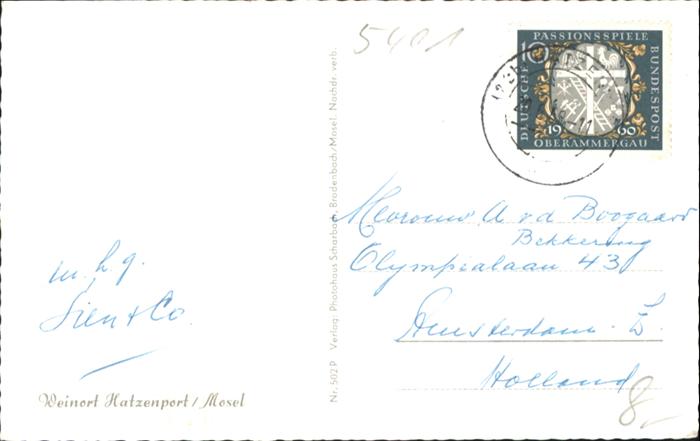 5401
10
PASSIONSSPIELE
DEUTSCHE
BUNDESPOST
1960
OBERAMMERGAU
m. h. g.
Sien & Co.
Weinort Hatzenport / Mosel
Nr. 502 P Verlag: Photohaus Scharbach, Brodenbach/Mosel. Nachdr. verb.
Mevrouw A v d Boogaard
Bekkering
Olympealaan 43
Amsterdam. Z.
Holland
8,-